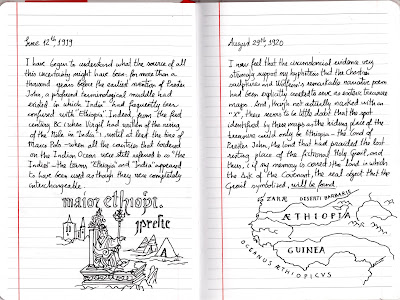 June 12th 1989
I have begun to understand what the source of all
this uncertainty might have been: for more than a
thousand years before the earliest mention of Prester
John, a profound terminological muddle had
existed in which "India" had frequently been
confused with "Ethiopia". Indeed, from the first
century BC (when Virgil had written of the rising
of the "Nile in "India"), until at least the time of
Marco Polo - when all the countries that bordered
on the Indian Ocean were still referred to as "the
Indies" - the terms "Ethiopia" and "India" appeared
to have been used as though they were completely
interchangeable.
maior ethiopi.
prester
August 29th 1920
I now feel that the circumstantial evidence very
strongly support my hypothesis that the Chartres
sculptures and Wolfram's remarkable narrative poem
had been explicitly created to serve as esoteric treasure
maps. And, though not actually marked with an
"X", there seems to be little doubt that the spot
identified by these maps as the hiding place of the
treasure could only be Ethiopia - the land of
Prester John, the land that had provided the last
resting place of the fictional Holy Grail, and
thus, if my memory is correct, the land in which
the Ark of the Covenant, the real object that the
Grail symbolised, will be found.
ZANÆ
DESERTI BARBARIS
ÆTHIOPIA
GUINEA
OCEANUS ÆTHIOPICUS